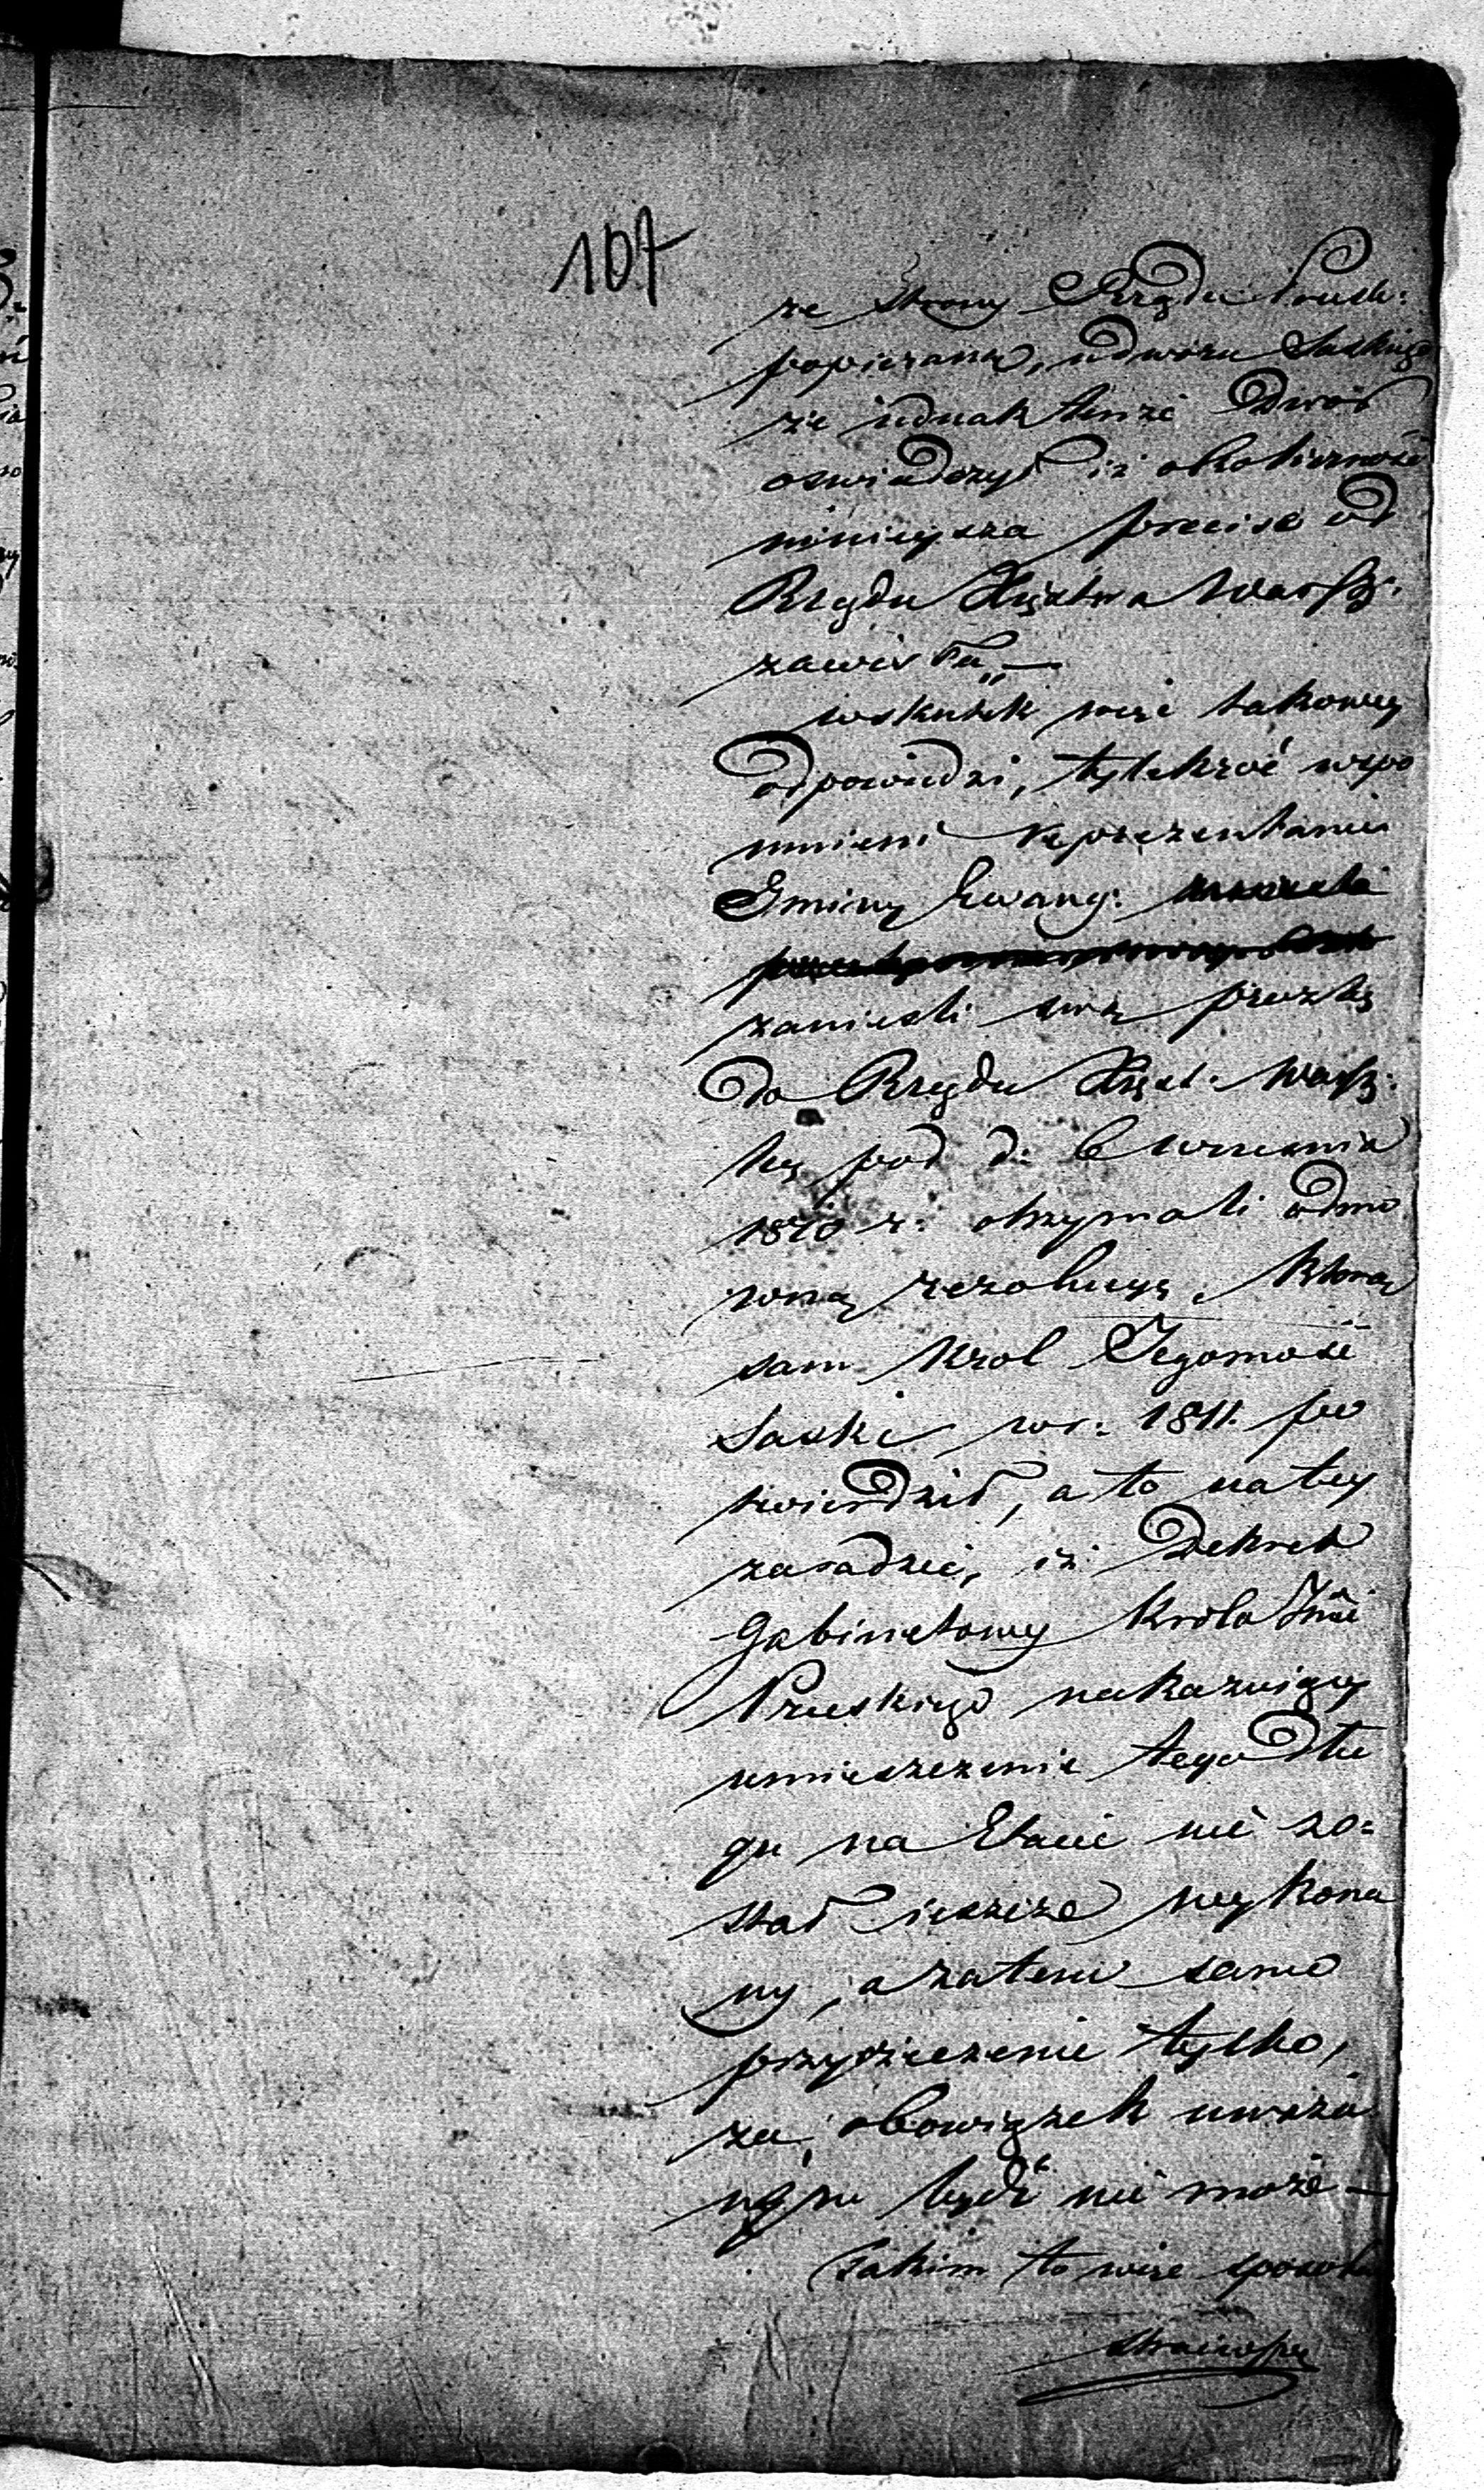 107
ze strony Rządu Prusk:
popierana, u dworu Saskiego
że iednak tenże Dwór
oswiadczył iż okoliczność
ninieysza precise od
Rządu Xięstwa Warsz:
zawisła„ —
wskutek więc takowey
odpowiedzi, tylekroć wspo
mnieni reprezentanci
Gminy Ewang:
zanieśli swą prozbę
do Rządu Xięst. Warsz:
lecz pod d: 6 Wrzesnia
1810 r: otrzymali odmo
wną rezolucyę, którą
sam Krol Jegomość
Saski w r: 1811. po
twierdził, a to na tey
zasadzie, iż Dekret
Gabinetowy Króla Jmci
Pruskiego nakazuiący
umieszczenie tego dłu
gu na Etacie nie zo=
stał ieszcze wykona
ny, a zatem samo
przyrzeczenie tylko,
za obowiązek uważa
nym bydź nie może —
Takim to więc sposobem
straciwszy